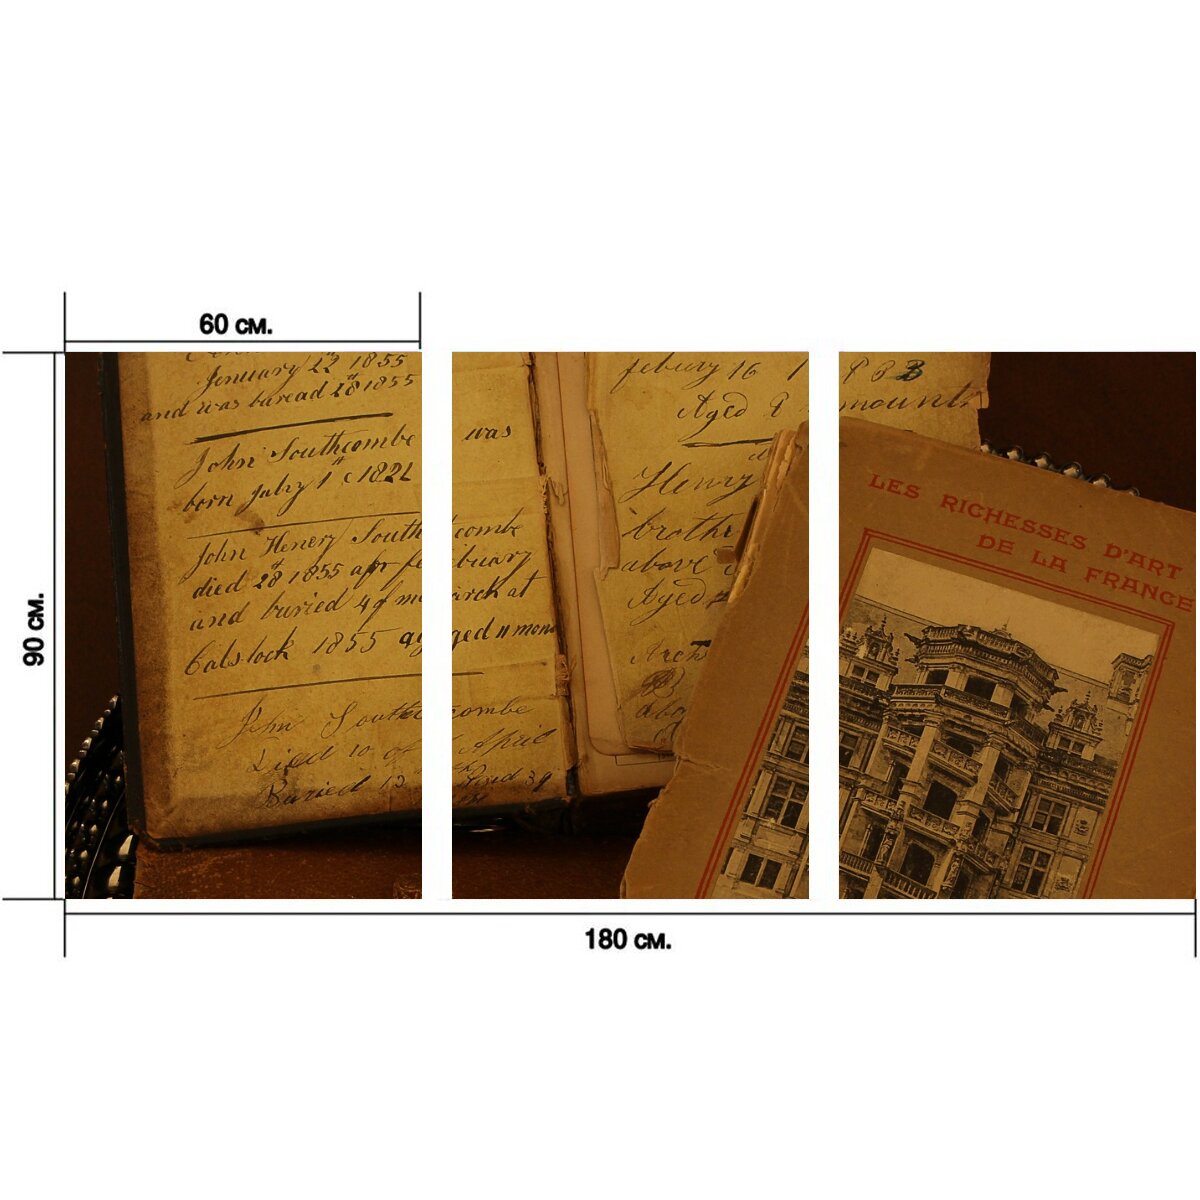 60 см.
90 см.
Jenuary 22 1855
and was buread 28 1855
John Southcombe was
born Jabry 1st c 1821
John Henery Southcombe
died 28 1855
and buried at
Calstock 1855 aged 11 mon
John Southcombe
Died 10 of April
Buried 13
febury 16 1
Aged
mounth
Henry
brothe
above
Aged
LES RICHESSES D'ART
DE LA FRANCE
180 см.